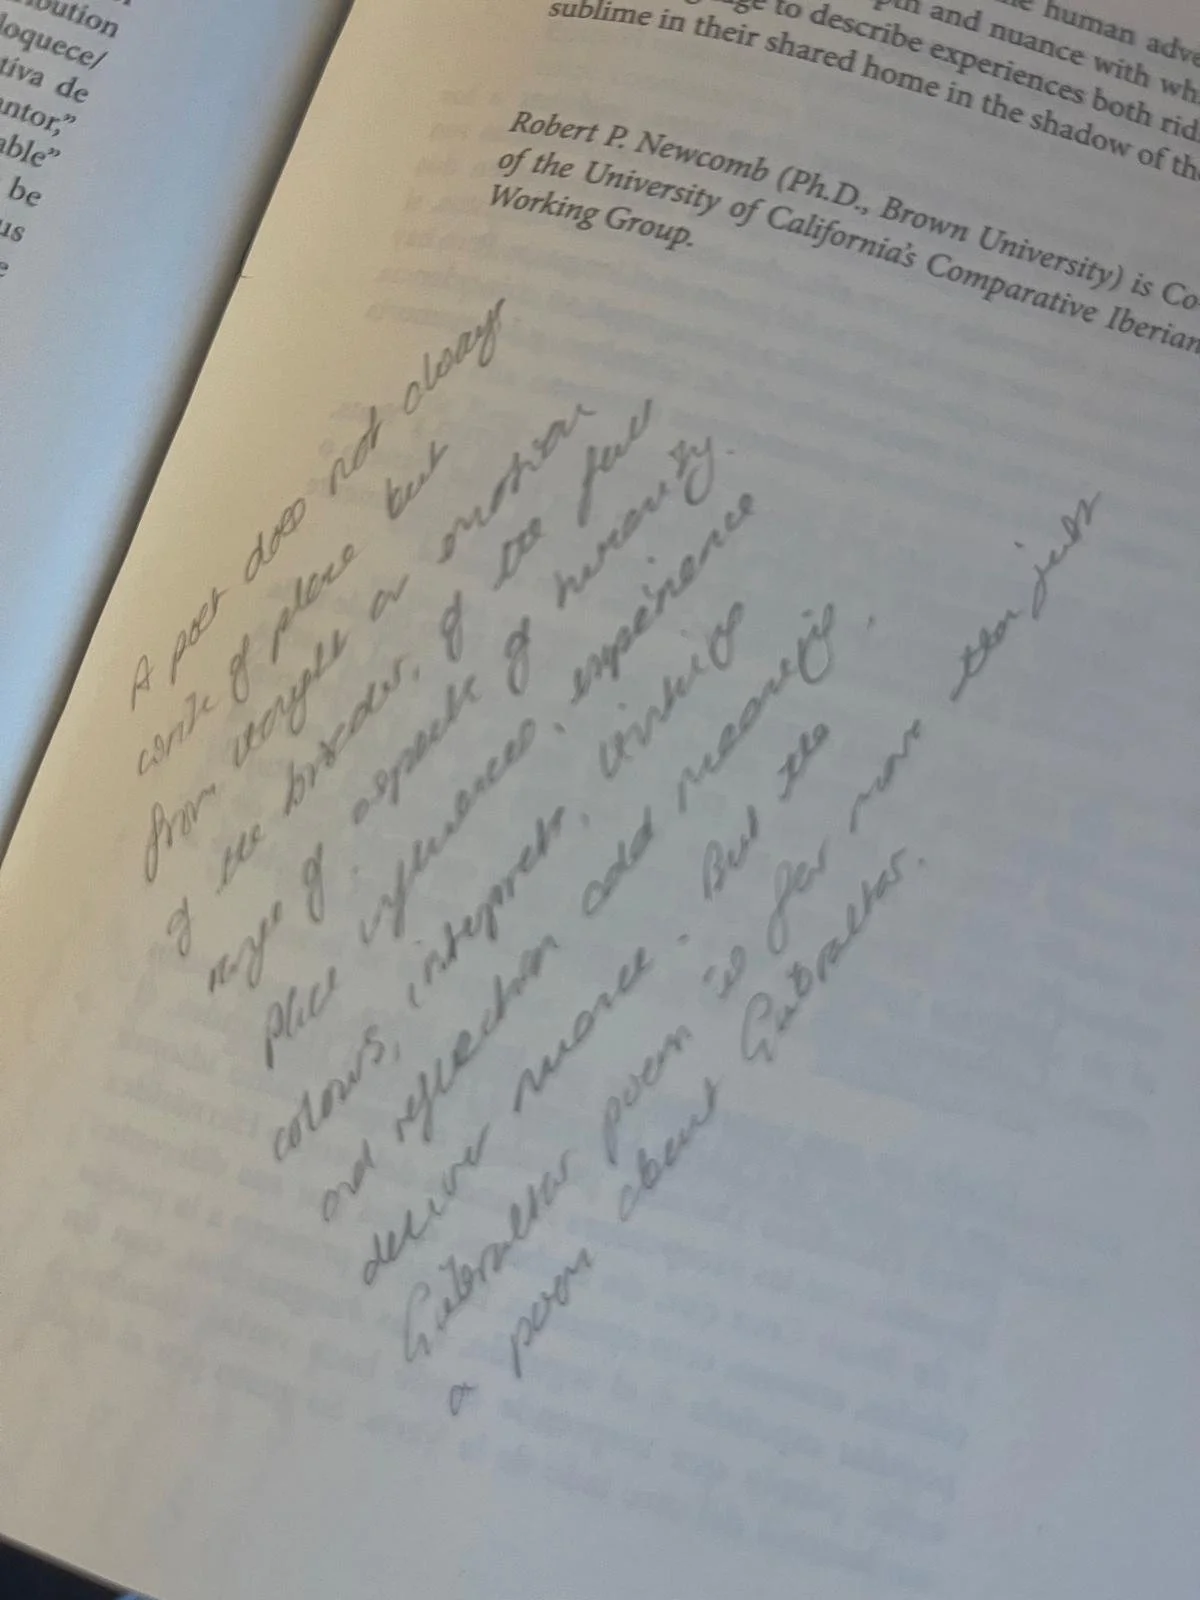 bution
loquece/
tiva de
antor,”
able”
be
us
e
human adve
and nuance with wh
ge to describe experiences both rid
sublime in their shared home in the shadow of th
Robert P. Newcomb (Ph.D., Brown University) is Co-
of the University of California's Comparative Iberian
Working Group.
A poet does not always
write of place but
from thought or emotion
of the broader, of the full
range of aspects of humanity.
Place influences, experience
colours, interprets, thinking
and reflection add meaning,
deliver nuance. But the
Gibraltar poem is far more than just
a poem about Gibraltar.